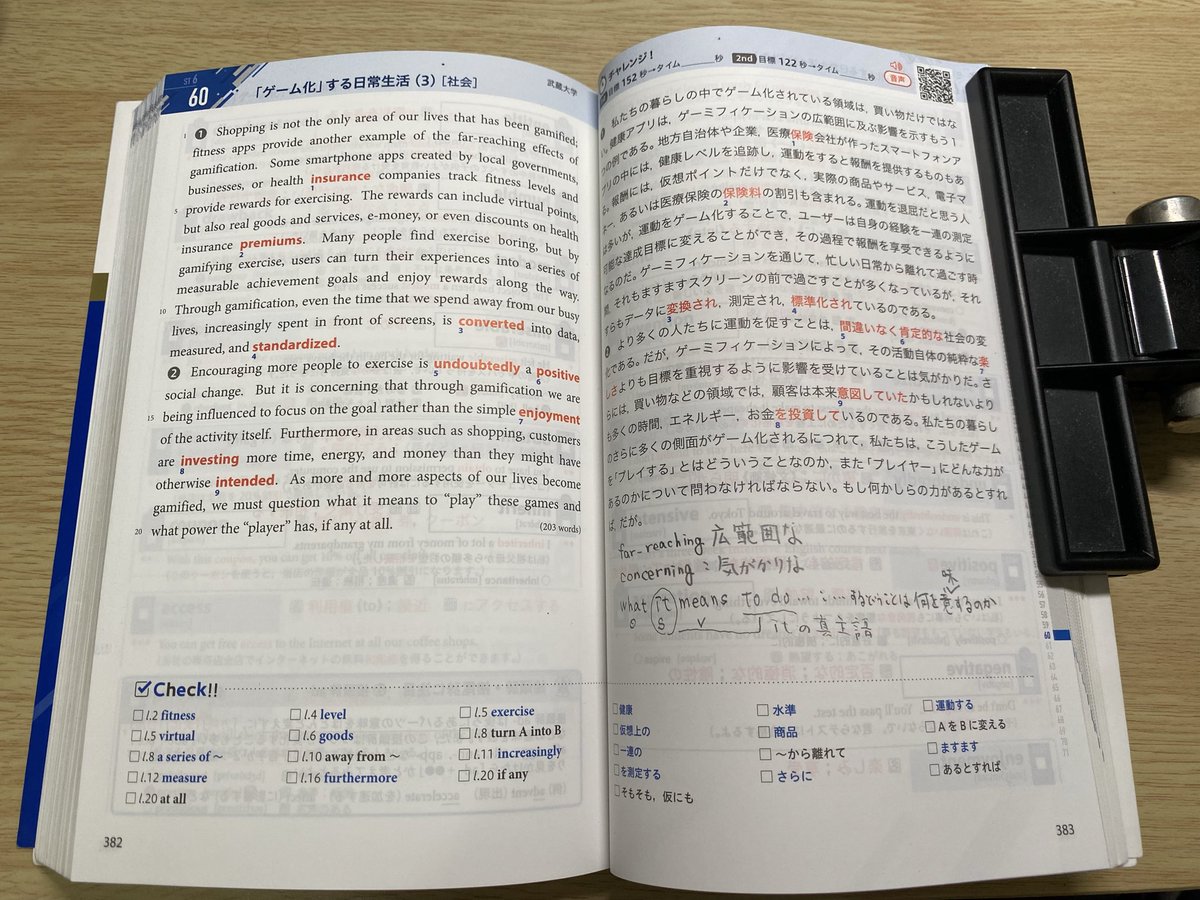 ST 6
60
「ゲーム化」する日常生活（3）［社会］
武蔵大学
1 ❶ Shopping is not the only area of our lives that has been gamified;
fitness apps provide another example of the far-reaching effects of
gamification. Some smartphone apps created by local governments,
businesses, or health insurance companies track fitness levels and
1
5 provide rewards for exercising. The rewards can include virtual points,
but also real goods and services, e-money, or even discounts on health
insurance premiums. Many people find exercise boring, but by
2
gamifying exercise, users can turn their experiences into a series of
measurable achievement goals and enjoy rewards along the way.
10 Through gamification, even the time that we spend away from our busy
lives, increasingly spent in front of screens, is converted into data,
3
measured, and standardized.
4
❷ Encouraging more people to exercise is undoubtedly a positive
5 6
social change. But it is concerning that through gamification we are
15 being influenced to focus on the goal rather than the simple enjoyment
7
of the activity itself. Furthermore, in areas such as shopping, customers
are investing more time, energy, and money than they might have
8
otherwise intended. As more and more aspects of our lives become
9
gamified, we must question what it means to “play” these games and
20 what power the “player” has, if any at all.
(203 words)
Check!!
l.2 fitness
l.4 level
l.5 exercise
l.5 virtual
l.6 goods
l.8 turn A into B
l.8 a series of ～
l.10 away from ～
l.11 increasingly
l.12 measure
l.16 furthermore
l.20 if any
l.20 at all
382
チャレンジ！
目標 152 秒→タイム 秒
2nd 目標 122 秒→タイム 秒
音声
私たちの暮らしの中でゲーム化されている領域は，買い物だけではな
い。健康アプリは，ゲーミフィケーションの広範囲に及ぶ影響を示すもう1
つの例である。地方自治体や企業，医療保険会社が作ったスマートフォンア
1
プリの中には，健康レベルを追跡し，運動をすると報酬を提供するものもあ
る。報酬には，仮想ポイントだけでなく，実際の商品やサービス，電子マ
ネー，あるいは医療保険の保険料の割引も含まれる。運動を退屈だと思う人
2
は多いが，運動をゲーム化することで，ユーザーは自身の経験を一連の測定
可能な達成目標に変えることができ，その過程で報酬を享受できるように
なるのだ。ゲーミフィケーションを通じて，忙しい日常から離れて過ごす時
間，それもますますスクリーンの前で過ごすことが多くなっているが，それ
すらもデータに変換され，測定され，標準化されているのである。
3 4
❷ より多くの人たちに運動を促すことは，間違いなく肯定的な社会の変
5 6
化である。だが，ゲーミフィケーションによって，その活動自体の純粋な楽
7
しさよりも目標を重視するように影響を受けていることは気がかりだ。さ
らには，買い物などの領域では，顧客は本来意図していたかもしれないより
9
も多くの時間，エネルギー，お金を投資しているのである。私たちの暮らし
8
のさらに多くの側面がゲーム化されるにつれて，私たちは，こうしたゲーム
を「プレイする」とはどういうことなのか，また「プレイヤー」にどんな力が
あるのかについて問わなければならない。もし何かしらの力があるとすれ
ば，だが。
far-reaching 広範囲な
concerning：気がかりな
what it means to do…：…するということは何を意味するのか
S V itの真主語
健康
水準
運動する
仮想上の
商品
AをBに変える
一連の
～から離れて
ますます
を測定する
さらに
あるとすれば
そもそも，仮にも
60
383